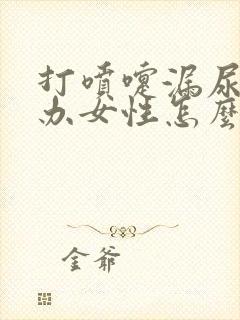 打噴嚏漏尿
办女性怎麼
金爺